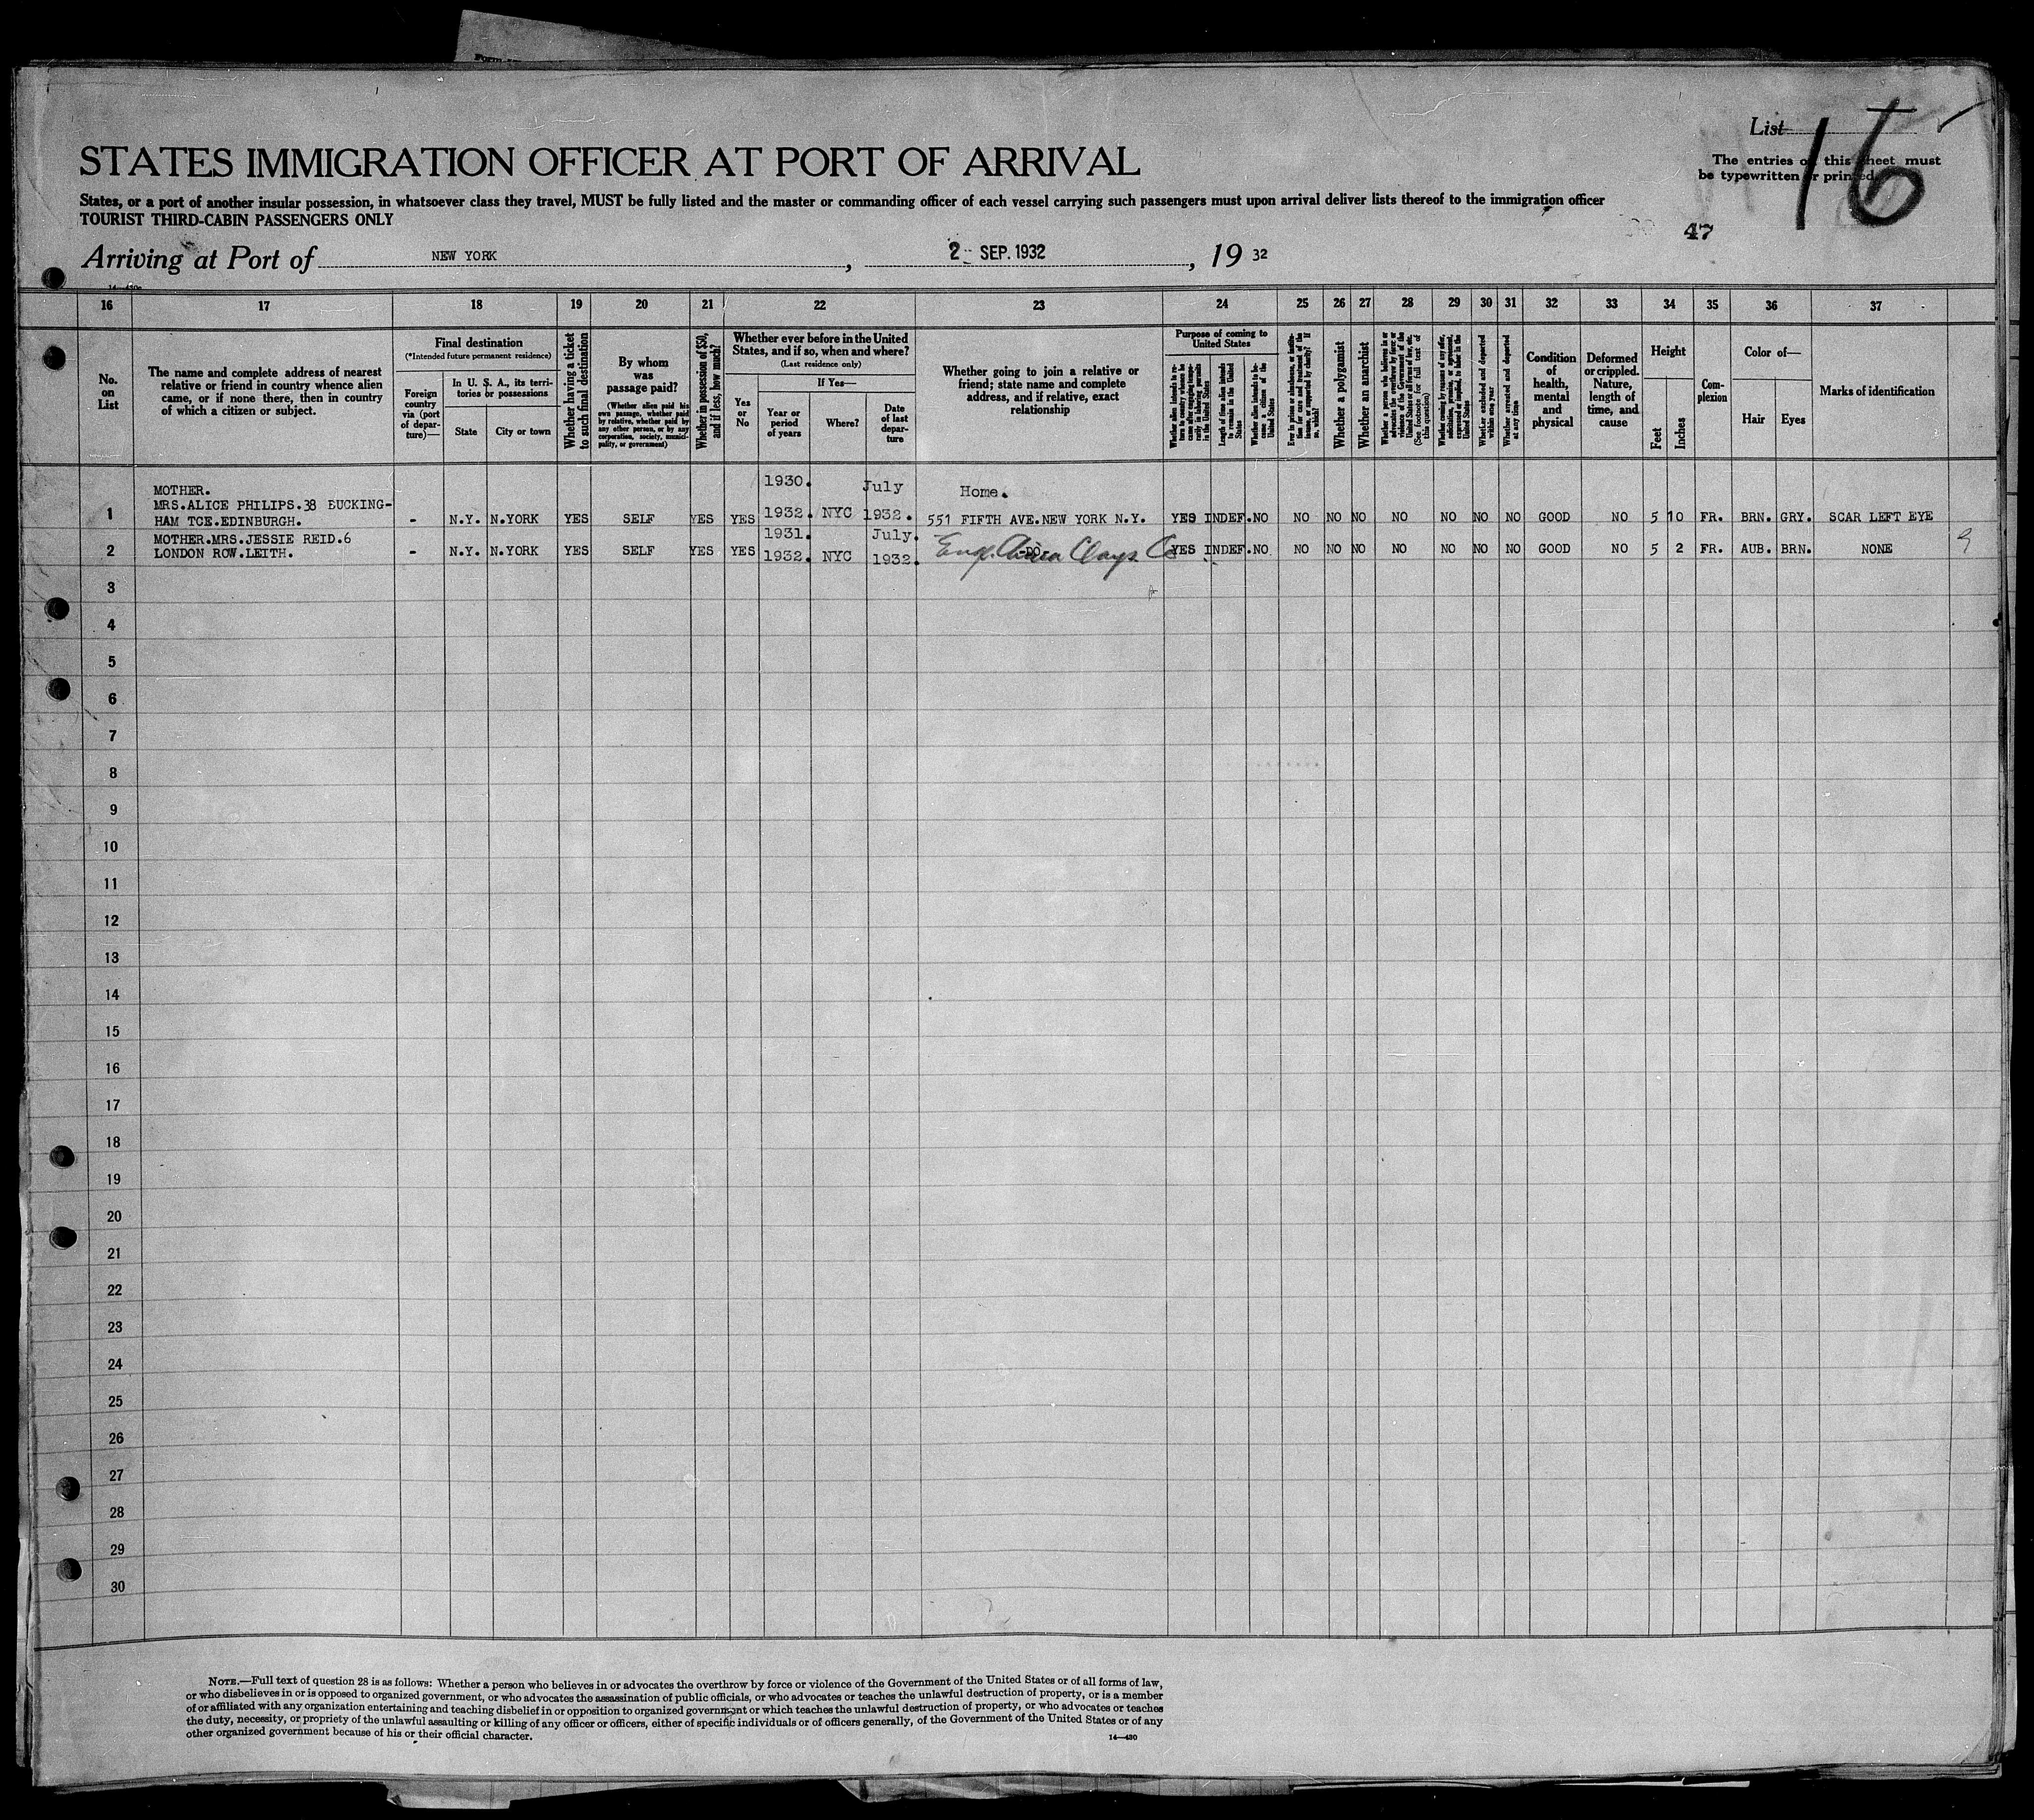 List 16
The entries on this sheet must
be typewritten or printed
STATES IMMIGRATION OFFICER AT PORT OF ARRIVAL
States, or a port of another insular possession, in whatsoever class they travel, MUST be fully listed and the master or commanding officer of each vessel carrying such passengers must upon arrival deliver lists thereof to the immigration officer
TOURIST THIRD-CABIN PASSENGERS ONLY
47
Arriving at Port of NEW YORK, 2 SEP. 1932, 19 32
16 17 18 19 20 21 22 23 24 25 26 27 28 29 30 31 32 33 34 35 36 37
No. on List
The name and complete address of nearest
relative or friend in country whence alien
came, or if none there, then in country
of which a citizen or subject.
Final destination
(*Intended future permanent residence)
Foreign country via (port of departure)—
In U. S. A., its territories or possessions
State
City or town
Whether having a ticket to such final destination
By whom was passage paid?
(Whether alien paid his own passage, whether paid by relative, whether paid by any other person, or by any corporation, society, municipality, or government)
Whether in possession of $50, and if less, how much?
Whether ever before in the United
States, and if so, when and where?
(Last residence only)
Yes or No
If Yes—
Year or period of years
Where?
Date of last departure
Whether going to join a relative or
friend; state name and complete
address, and if relative, exact
relationship
Purpose of coming to United States
Length of time alien intends to remain in the United States
Whether alien intends to become a citizen of the United States
Whether a polygamist
Whether an anarchist
Whether excluded and deported within one year
Whether arrested and deported at any time
Condition of health, mental and physical
Deformed or crippled. Nature, length of time, and cause
Height
Feet
Inches
Complexion
Color of—
Hair
Eyes
Marks of identification
MOTHER. 1930. July Home.
MRS.ALICE PHILIPS.38 BUCKING-
1 HAM TCE.EDINBURGH. - N.Y. N.YORK YES SELF YES YES 1932. NYC 1932. 551 FIFTH AVE.NEW YORK N.Y. YES INDEF. NO NO NO NO NO NO NO NO GOOD NO 5 10 FR. BRN. GRY. SCAR LEFT EYE
MOTHER.MRS.JESSIE REID.6 1931. July.
2 LONDON ROW.LEITH. - N.Y. N.YORK YES SELF YES YES 1932. NYC 1932. -DO- Clays Co YES INDEF. NO NO NO NO NO NO NO NO GOOD NO 5 2 FR. AUB. BRN. NONE
3
4
5
6
7
8
9
10
11
12
13
14
15
16
17
18
19
20
21
22
23
24
25
26
27
28
29
30
NOTE.—Full text of question 28 is as follows: Whether a person who believes in or advocates the overthrow by force or violence of the Government of the United States or of all forms of law,
or who disbelieves in or is opposed to organized government, or who advocates the assassination of public officials, or who advocates or teaches the unlawful destruction of property, or is a member
of or affiliated with any organization entertaining and teaching disbelief in or opposition to organized government or which teaches the unlawful destruction of property, or who advocates or teaches
the duty, necessity, or propriety of the unlawful assaulting or killing of any officer or officers, either of specific individuals or of officers generally, of the Government of the United States or of any
other organized government because of his or their official character.
14—430